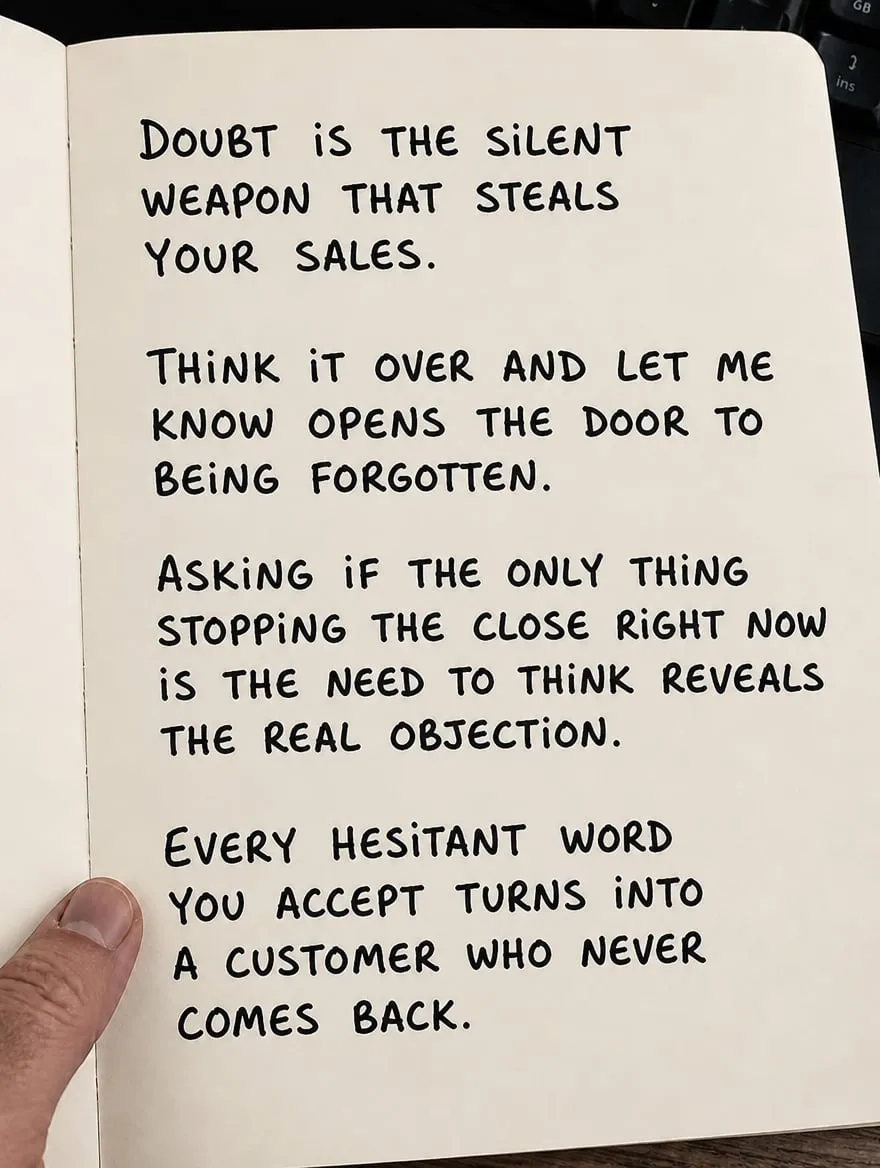 DOUBT iS THE SiLENT
WEAPON THAT STEALS
YOUR SALES.
THiNK iT OVER AND LET ME
KNOW OPENS THE DOOR TO
BEiNG FORGOTTEN.
ASKiNG iF THE ONLY THiNG
STOPPiNG THE CLOSE RiGHT NOW
iS THE NEED TO THiNK REVEALS
THE REAL OBJECTiON.
EVERY HESiTANT WORD
YOU ACCEPT TURNS iNTO
A CUSTOMER WHO NEVER
COMES BACK.
GB
ins